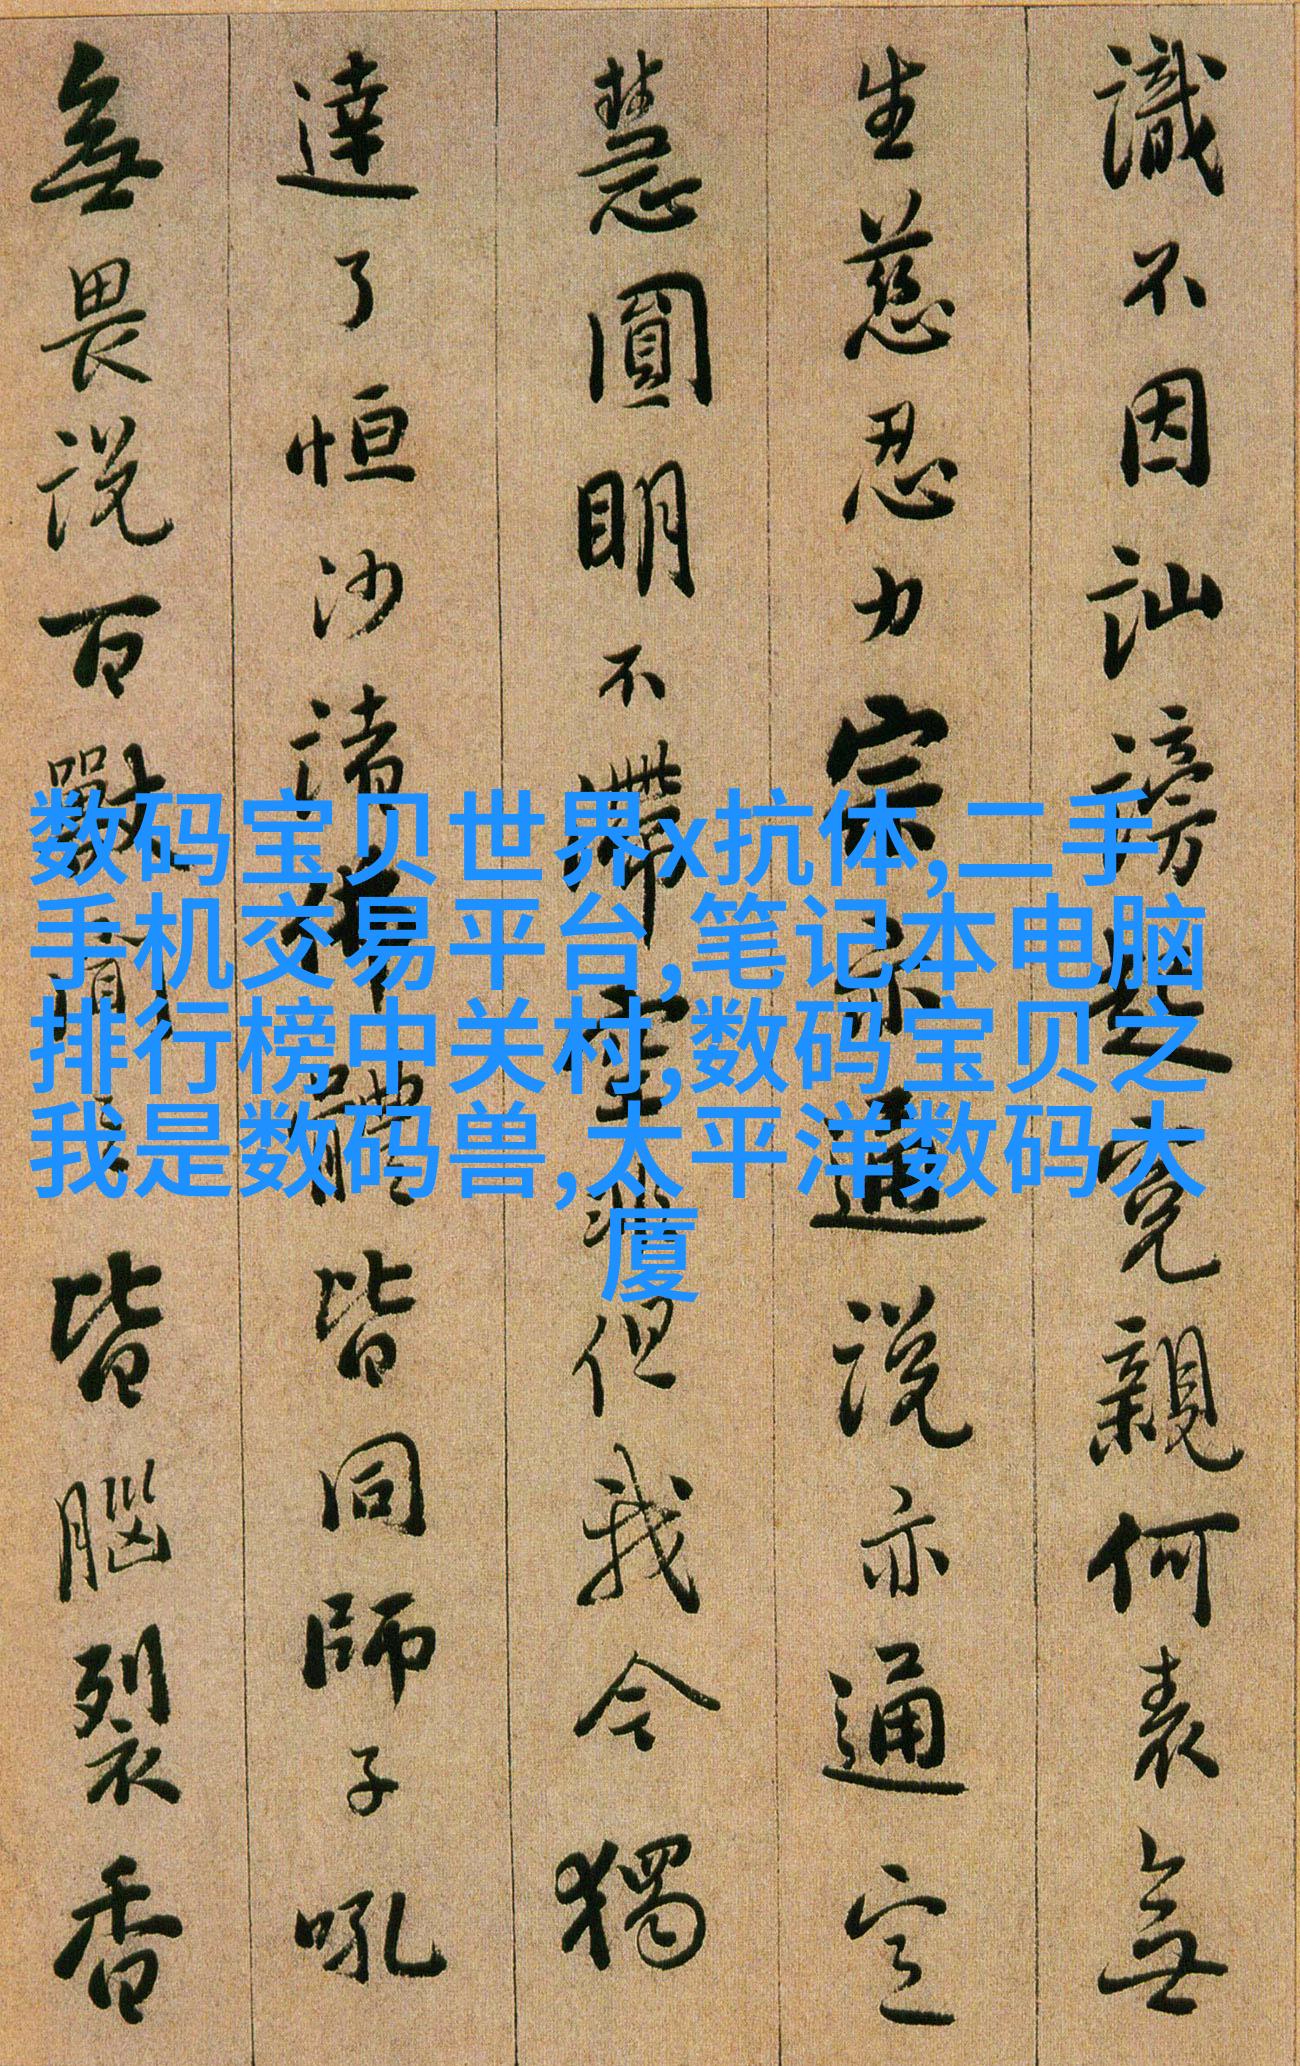 識不因訕謗起寃親何表無
生慈忍力宗亦通説亦通定
慧圓明不滯空非但我今獨
達了恒沙諸佛體皆同師子吼
無畏説百獸聞皆腦裂香
数码宝贝世界x抗体,二手
手机交易平台,笔记本电脑
排行榜中关村,数码宝贝之
我是数码兽,太平洋数码大
厦